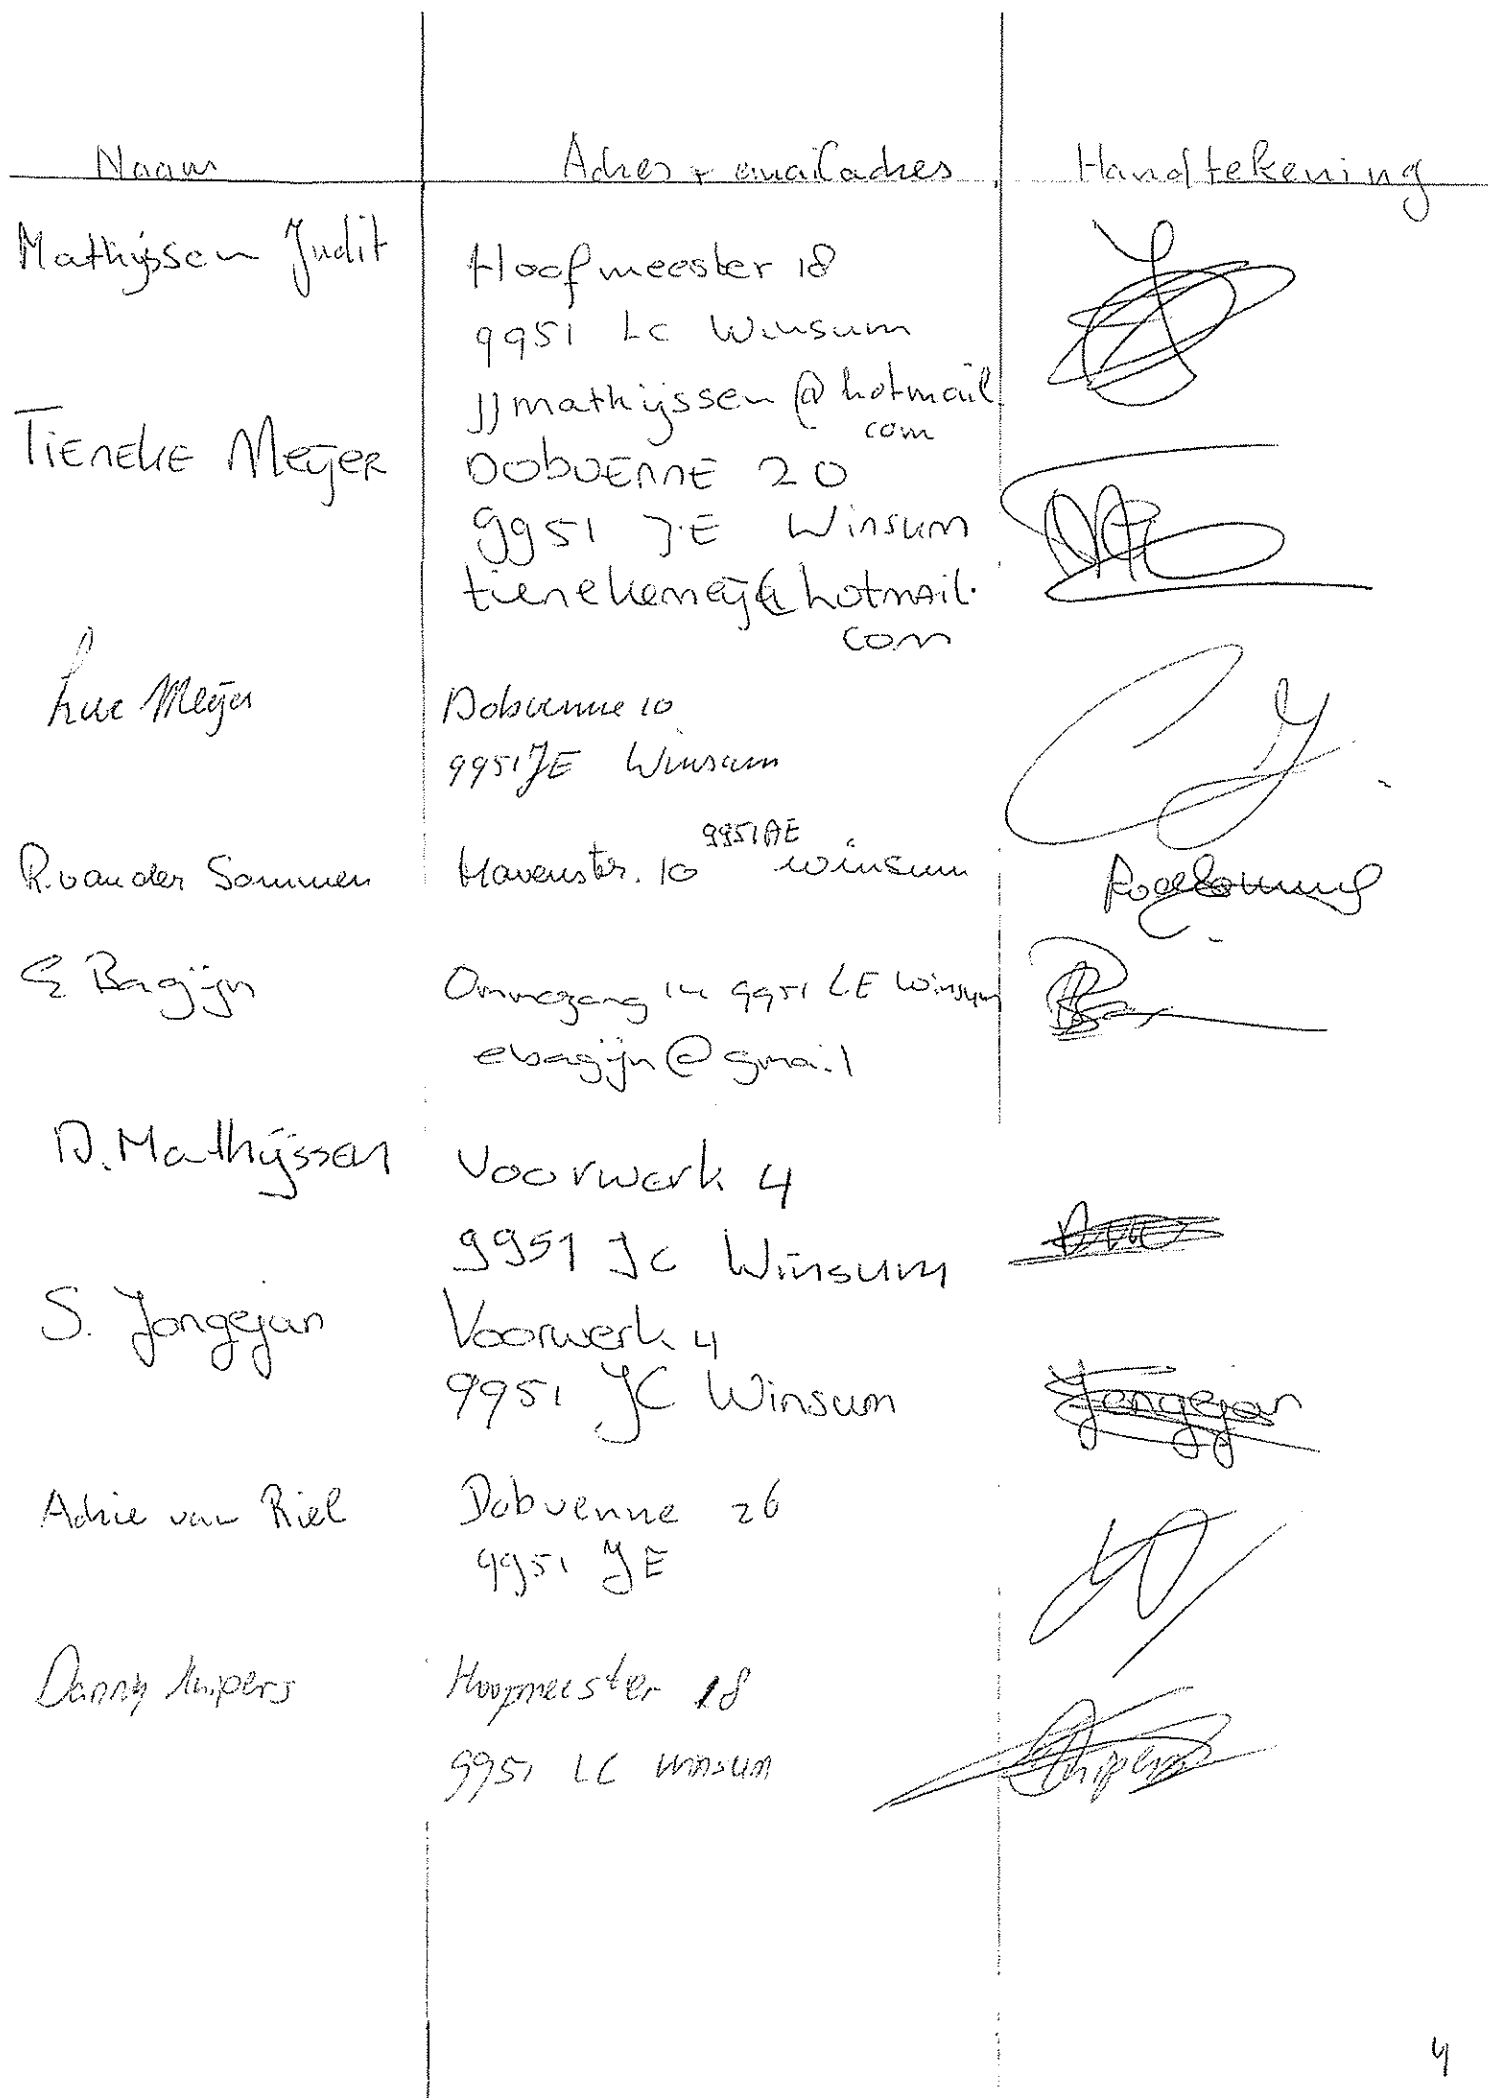 Naam Adres + emailadres Handtekening
Mathijssen Judit
Hoofmeester 18
9951 LC Winsum
jjmathijssen@hotmail.
com
Tieneke Meijer
Dobvenne 20
9951 JE Winsum
tienekemeij@hotmail.
com
Luc Meijer
Dobvenne 10
9951 JE Winsum
9951 AE
R. van der Sommen Havenstr. 10 Winsum
E Bagijn Ommegang 14 9951 LE Winsum
ebagijn@gmail
D. Mathijssen Voorwerk 4
9951 JC Winsum
S. Jongejan Voorwerk 4
9951 JC Winsum Jongejan
Adrie van Riel Dobvenne 26
9951 JE
Danny Kuipers Hoofmeester 18
9951 LC Winsum Kuipers
4